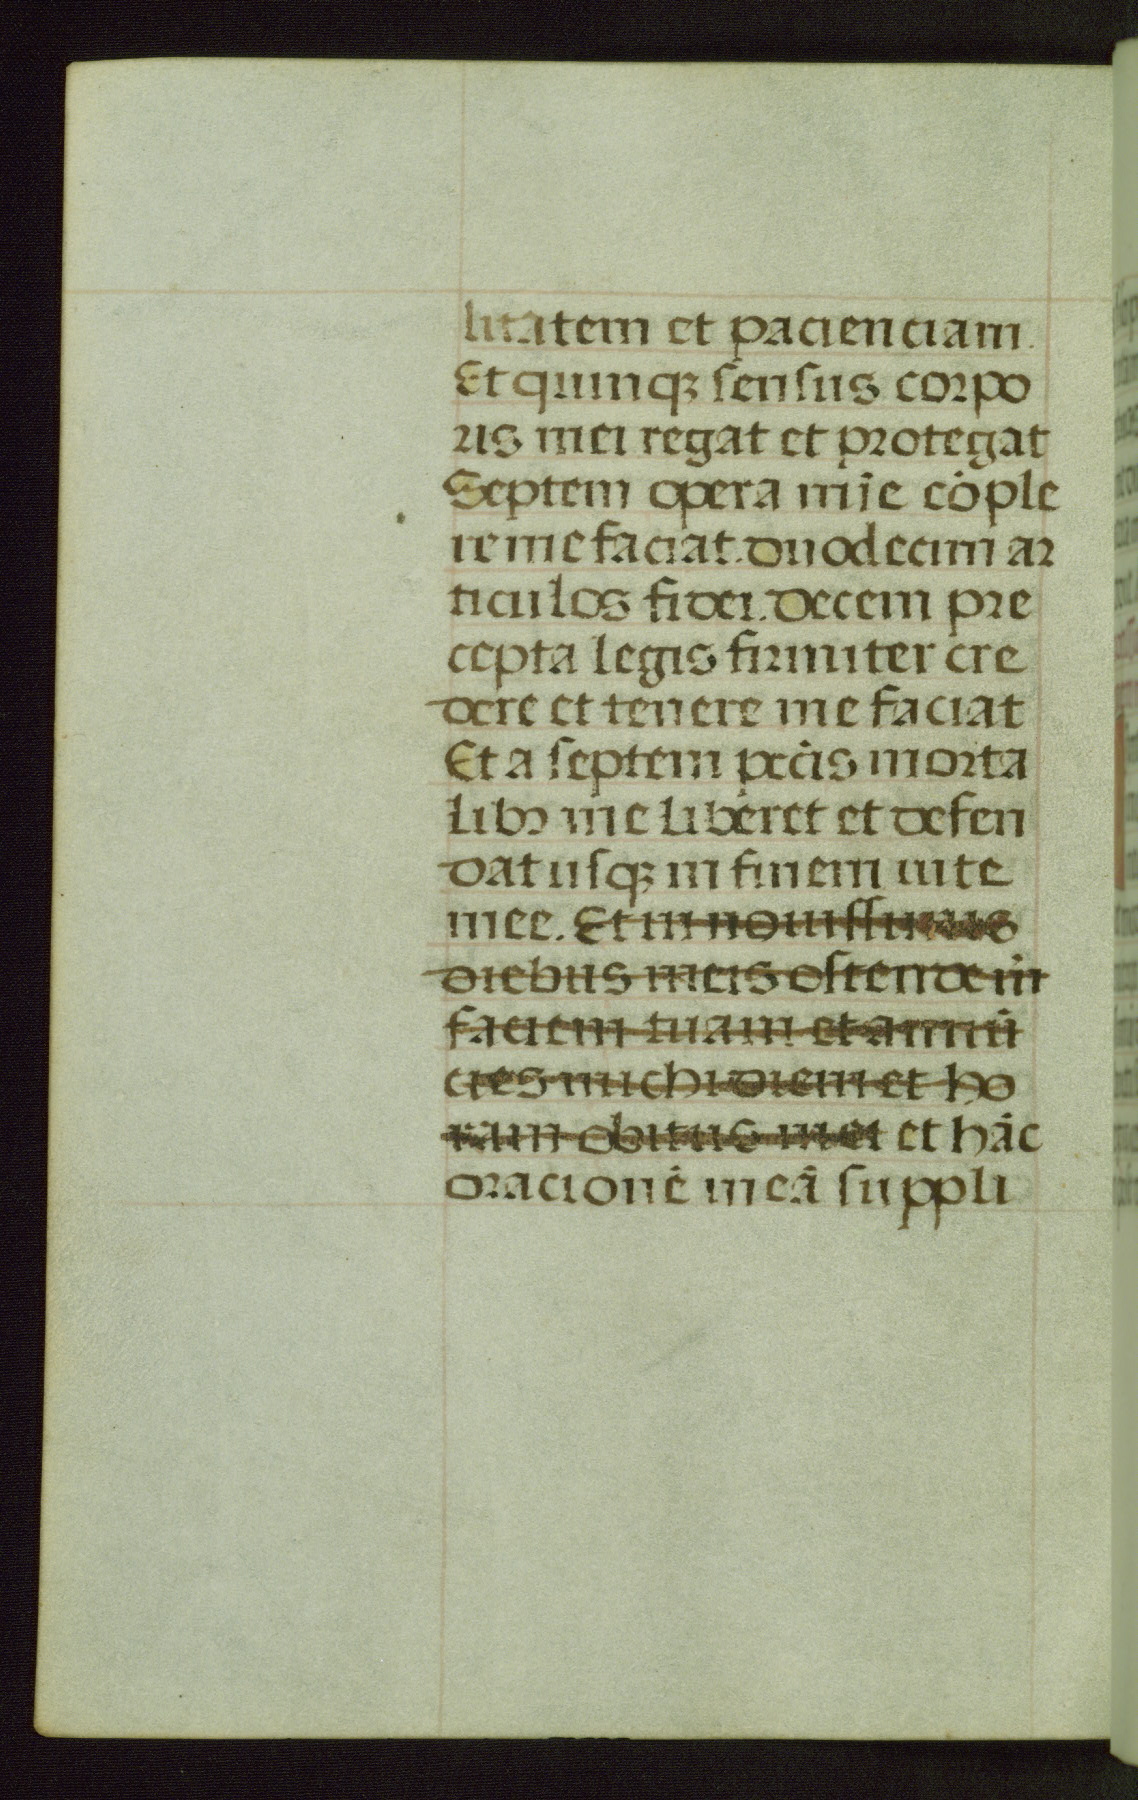 litatem et pacienciam.
Et quinqꝫ sensus corpo
ris mei regat et protegat
Septem opera mīe cōple
re me faciat. duodecim ar
ticulos fidei. Decem pre
cepta legis firmiter cre
dere et tenere me faciat
Et a septem pctīs morta
libꝫ me liberet et defen
dat usqꝫ in finem uite
mee. Et in nouissimis
diebus meis ostende m̄
faciem tuam et annū
cies michi diem et ho
ram obitus mei et hāc
oracionē meā suppli